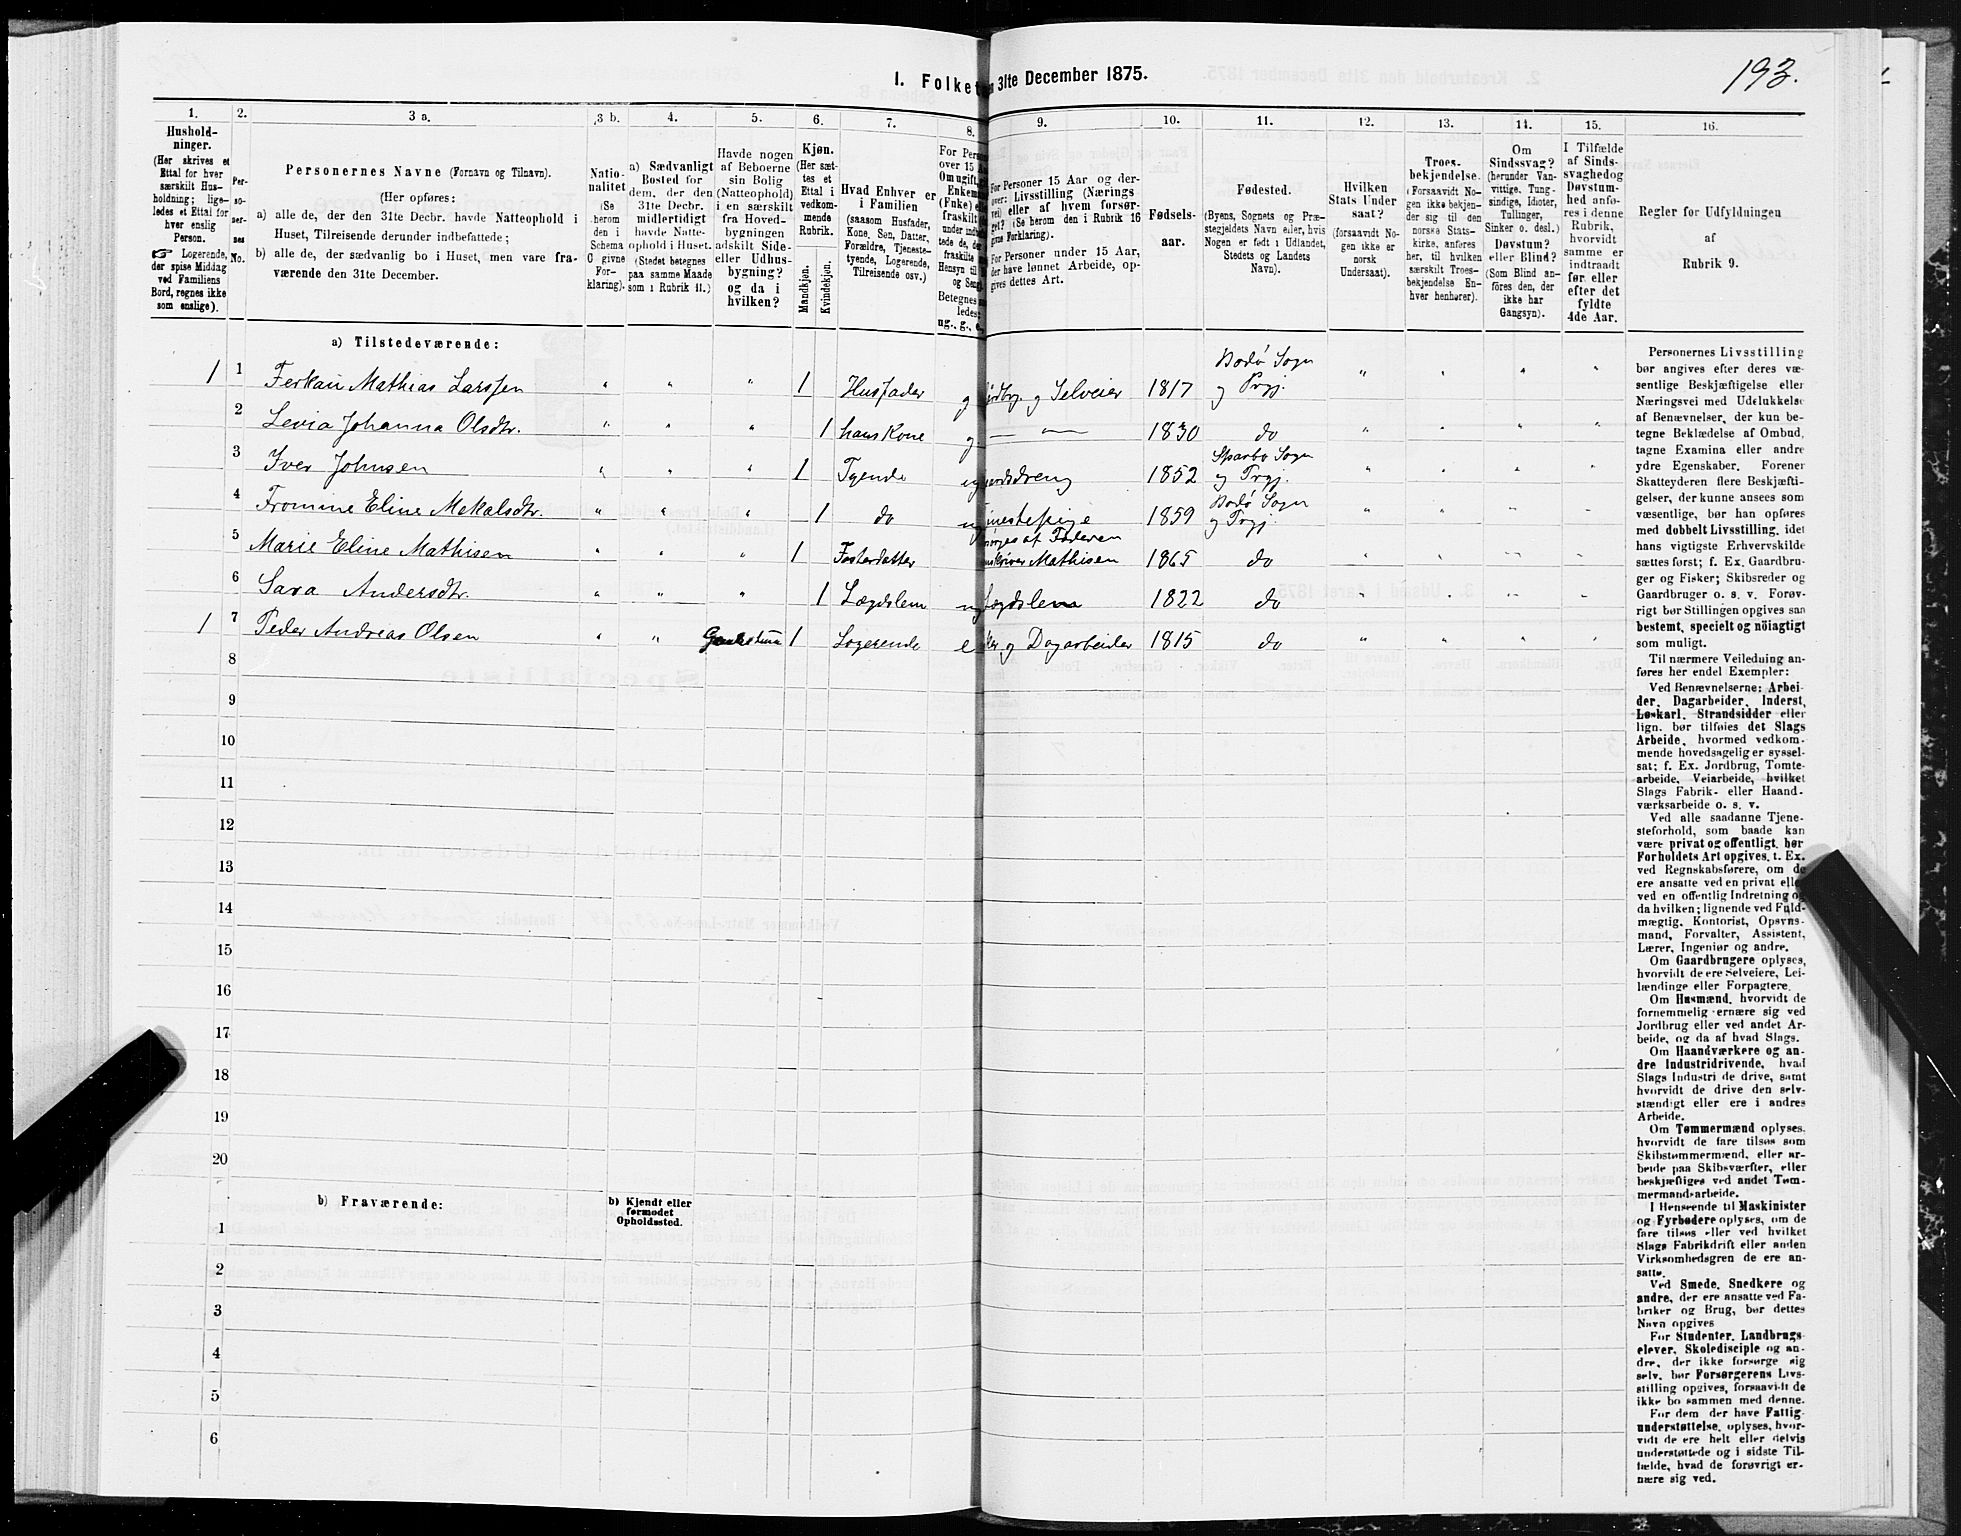 193.
I. Folket 31te December 1875.
1. 2. 3 a. 3 b. 4. 5. 6. 7. 8. 9. 10. 11. 12. 13. 14. 15. 16.
Hushold-
ninger.
(Her skrives et
Ettal for hver
særskilt Hus-
holdning; lige-
ledes et Ettal for
hver enslig
Person.
☞ Logerende,
der spise Middag
ved Familiens
Bord, regnes ikke
som enslige).
Per-
so-
ner-
nes
No.
Personernes Navne (Fornavn og Tilnavn).
(Her opføres:
a) alle de, der den 31te Decbr. havde Natteophold i
Huset, Tilreisende derunder indbefattede;
b) alle de, der sædvanlig bo i Huset, men vare fra-
værende den 31te December.
Natio-
nalitet
(Se
herom
den i
Schema
O givne
For-
klaring).
a) Sædvanligt
Bosted for
dem, der den
31te Decbr.
midlertidigt
havde Natte-
ophold i Huset.
(Stedet betegnes
paa samme Maade
som i Rubrik 11.)
Havde nogen
af Beboerne
sin Bolig
(Natteophold)
i en særskilt
fra Hoved-
bygningen
adskilt Side-
eller Udhus-
bygning?
og da i
hvilken?
Kjøn.
(Her sæt-
tes et
Ettal i
vedkom-
mende
Rubrik.
Mandkjøn.
Kvindekjøn.
Hvad Enhver er
i Familien
(saasom Husfader,
Kone, Søn, Datter,
Forældre, Tjeneste-
tyende, Logerende,
Tilreisende osv.)
For Pers
over 15 A
Om ugift,
Enkem
(Fnke)
fraskilt
under
tede de,
fraskilte
Hensyn til
og Seng.
Betegnes
ledes:
ug., g., e.,
For Personer 15 Aar og der-
over: Livsstilling (Nærings
vei) eller af hvem forsør-
get? (Se herom den i Rubrik 16
givne Forklaring).
For Personer under 15 Aar,
der have lønnet Arbeide, op-
gives dettes Art.
Fødsels-
aar.
Fødested.
(Byens, Sognets og Præ-
stegjeldets Navn eller, hvis
Nogen er født i Udlandet,
Stedets og Landets
Navn).
Hvilken
Stats Under
saat?
(forsaavidt No-
gen ikke er
norsk
Undersaat).
Troes-
bekjendelse.
(Forsaavidt No-
gen ikke bekjen-
der sig til den
norske Stats-
kirke, anføres
her, til hvilken
særskilt Troes-
bekjendelse En-
hver henhører).
Om
Sindssvag?
(herunder Van-
vittige, Tung-
sindige, Idioter,
Tullinger,
Sinker o. desl.)
Døvstum?
eller Blind?
(Som Blind an-
føres den, der
ikke har
Gangsyn).
I Tilfælde
af Sinds-
svaghed og
Døvstum-
hed anfø-
res i denne
Rubrik,
hvorvidt
samme er
indtraadt
før eller
efter det
fyldte
4de Aar.
Regler for Udfyldningen
af
Rubrik 9.
a) Tilstedeværende:
1 1 Ferkau Mathias Larssen " " " 1 Husfader g Jordbr. og Selveier 1817 Bodø Sogn og Prgj. " " " "
2 Levia Johanna Olsdtr. " " " 1 hans Kone g — " — 1830 do " " " "
3 Iver Johnsen " " " 1 Tyende ug 1852 Sparbo Sogn og Prgj. " " " "
4 Fromine Eline Mekalsdtr. " " " 1 do ug 1859 Bodø Sogn og Prgj. " " " "
5 Marie Eline Mathisen " " " 1 Fosterdatter af Faderen Mathisen 1865 do " " " "
6 Sara Andersdtr. " " " 1 Lægdslem ug Lægdslem 1822 do " " " "
1 7 Peder Andreas Olsen " " 1 Logerende e og Dagarbeider 1815 do " " " "
8
9
10
11
12
13
14
15
16
17
18
19
20
b) Fraværende:
b) Kjendt eller
formodet
Opholdssted.
1
2
3
4
5
6
Personernes Livsstilling
bør angives efter deres væ-
sentlige Beskjæftigelse eller
Næringsvei med Udelukkelse
af Benævnelser, der kun be-
tegne Beklædelse af Ombud,
tagne Examina eller andre
ydre Egenskaber. Forener
Skatteyderen flere Beskjæfti-
gelser, der kunne ansees som
væsentlige, bør han opføres
med dobbelt Livsstilling, idet
hans vigtigste Erhvervskilde
sættes først; f. Ex. Gaardbru-
ger og Fisker; Skibsreder og
Gaardbruger o. s. v. Forøv-
rigt bør Stillingen opgives saa
bestemt, specielt og nøiagtigt
som muligt.
Til nærmere Veiledning an-
føres her endel Exempler:
Ved Benævnelserne: Arbei-
der, Dagarbeider, Inderst,
Løskarl, Strandsidder eller
lign. bør tilføies det Slags
Arbeide, hvormed vedkom-
mende hovedsagelig er syssel-
sat; f. Ex. Jordbrug, Tomte-
arbeide, Veiarbeide, hvilket
Slags Fabrik- eller Haand-
værksarbeide o. s. v.
Ved alle saadanne Tjene-
steforhold, som baade kan
være privat og offentligt, bør
Forholdets Art opgives, t. Ex.
ved Regnskabsførere, om de
ere ansatte ved en privat eller
ved en offentlig Indretning og
da hvilken; lignende ved Fuld-
mægtig, Kontorist, Opsyns-
mand, Forvalter, Assistent,
Lærer, Ingeniør og andre.
Om Gaardbrugere oplyses,
hvorvidt de ere Selveiere, Lei-
lændinge eller Forpagtere.
Om Husmænd, hvorvidt de
fornemmelig ernære sig ved
Jordbrug eller ved andet Ar-
beide, og da af hvad Slags.
Om Haandværkere og an-
dre Industridrivende, hvad
Slags Industri de drive, samt
hvorvidt de drive den selv-
stændigt eller ere i andres
Arbeide.
Om Tømmermænd oplyses,
hvorvidt de fare tilsøs som
Skibstømmermænd, eller ar-
beide paa Skibsværfter, eller
beskjæftiges ved andet Tøm-
mermandsarbeide.
I Henseende til Maskinister
og Fyrbødere oplyses, om de
fare tilsøs eller ved hvilket
Slags Fabrikdrift eller anden
Virksomhedsgren de ere an-
satte.
Ved Smede, Snedkere og
andre, der ere ansatte ved Fa-
briker og Brug, bør dettes
Navn opgives
For Studenter, Landbrugs-
elever, Skoledisciple og an-
dre, der ikke forsørge sig
selv, bør Forsørgerens Livs-
stilling opgives, forsaavidt de
ikke bo sammen med denne.
For dem der have Fattig-
understøttelse, oplyses, hvor-
vidt de ere helt eller delvis
understøttede og i sidste Til-
fælde, hvad de forøvrigt er-
nære sig ved.